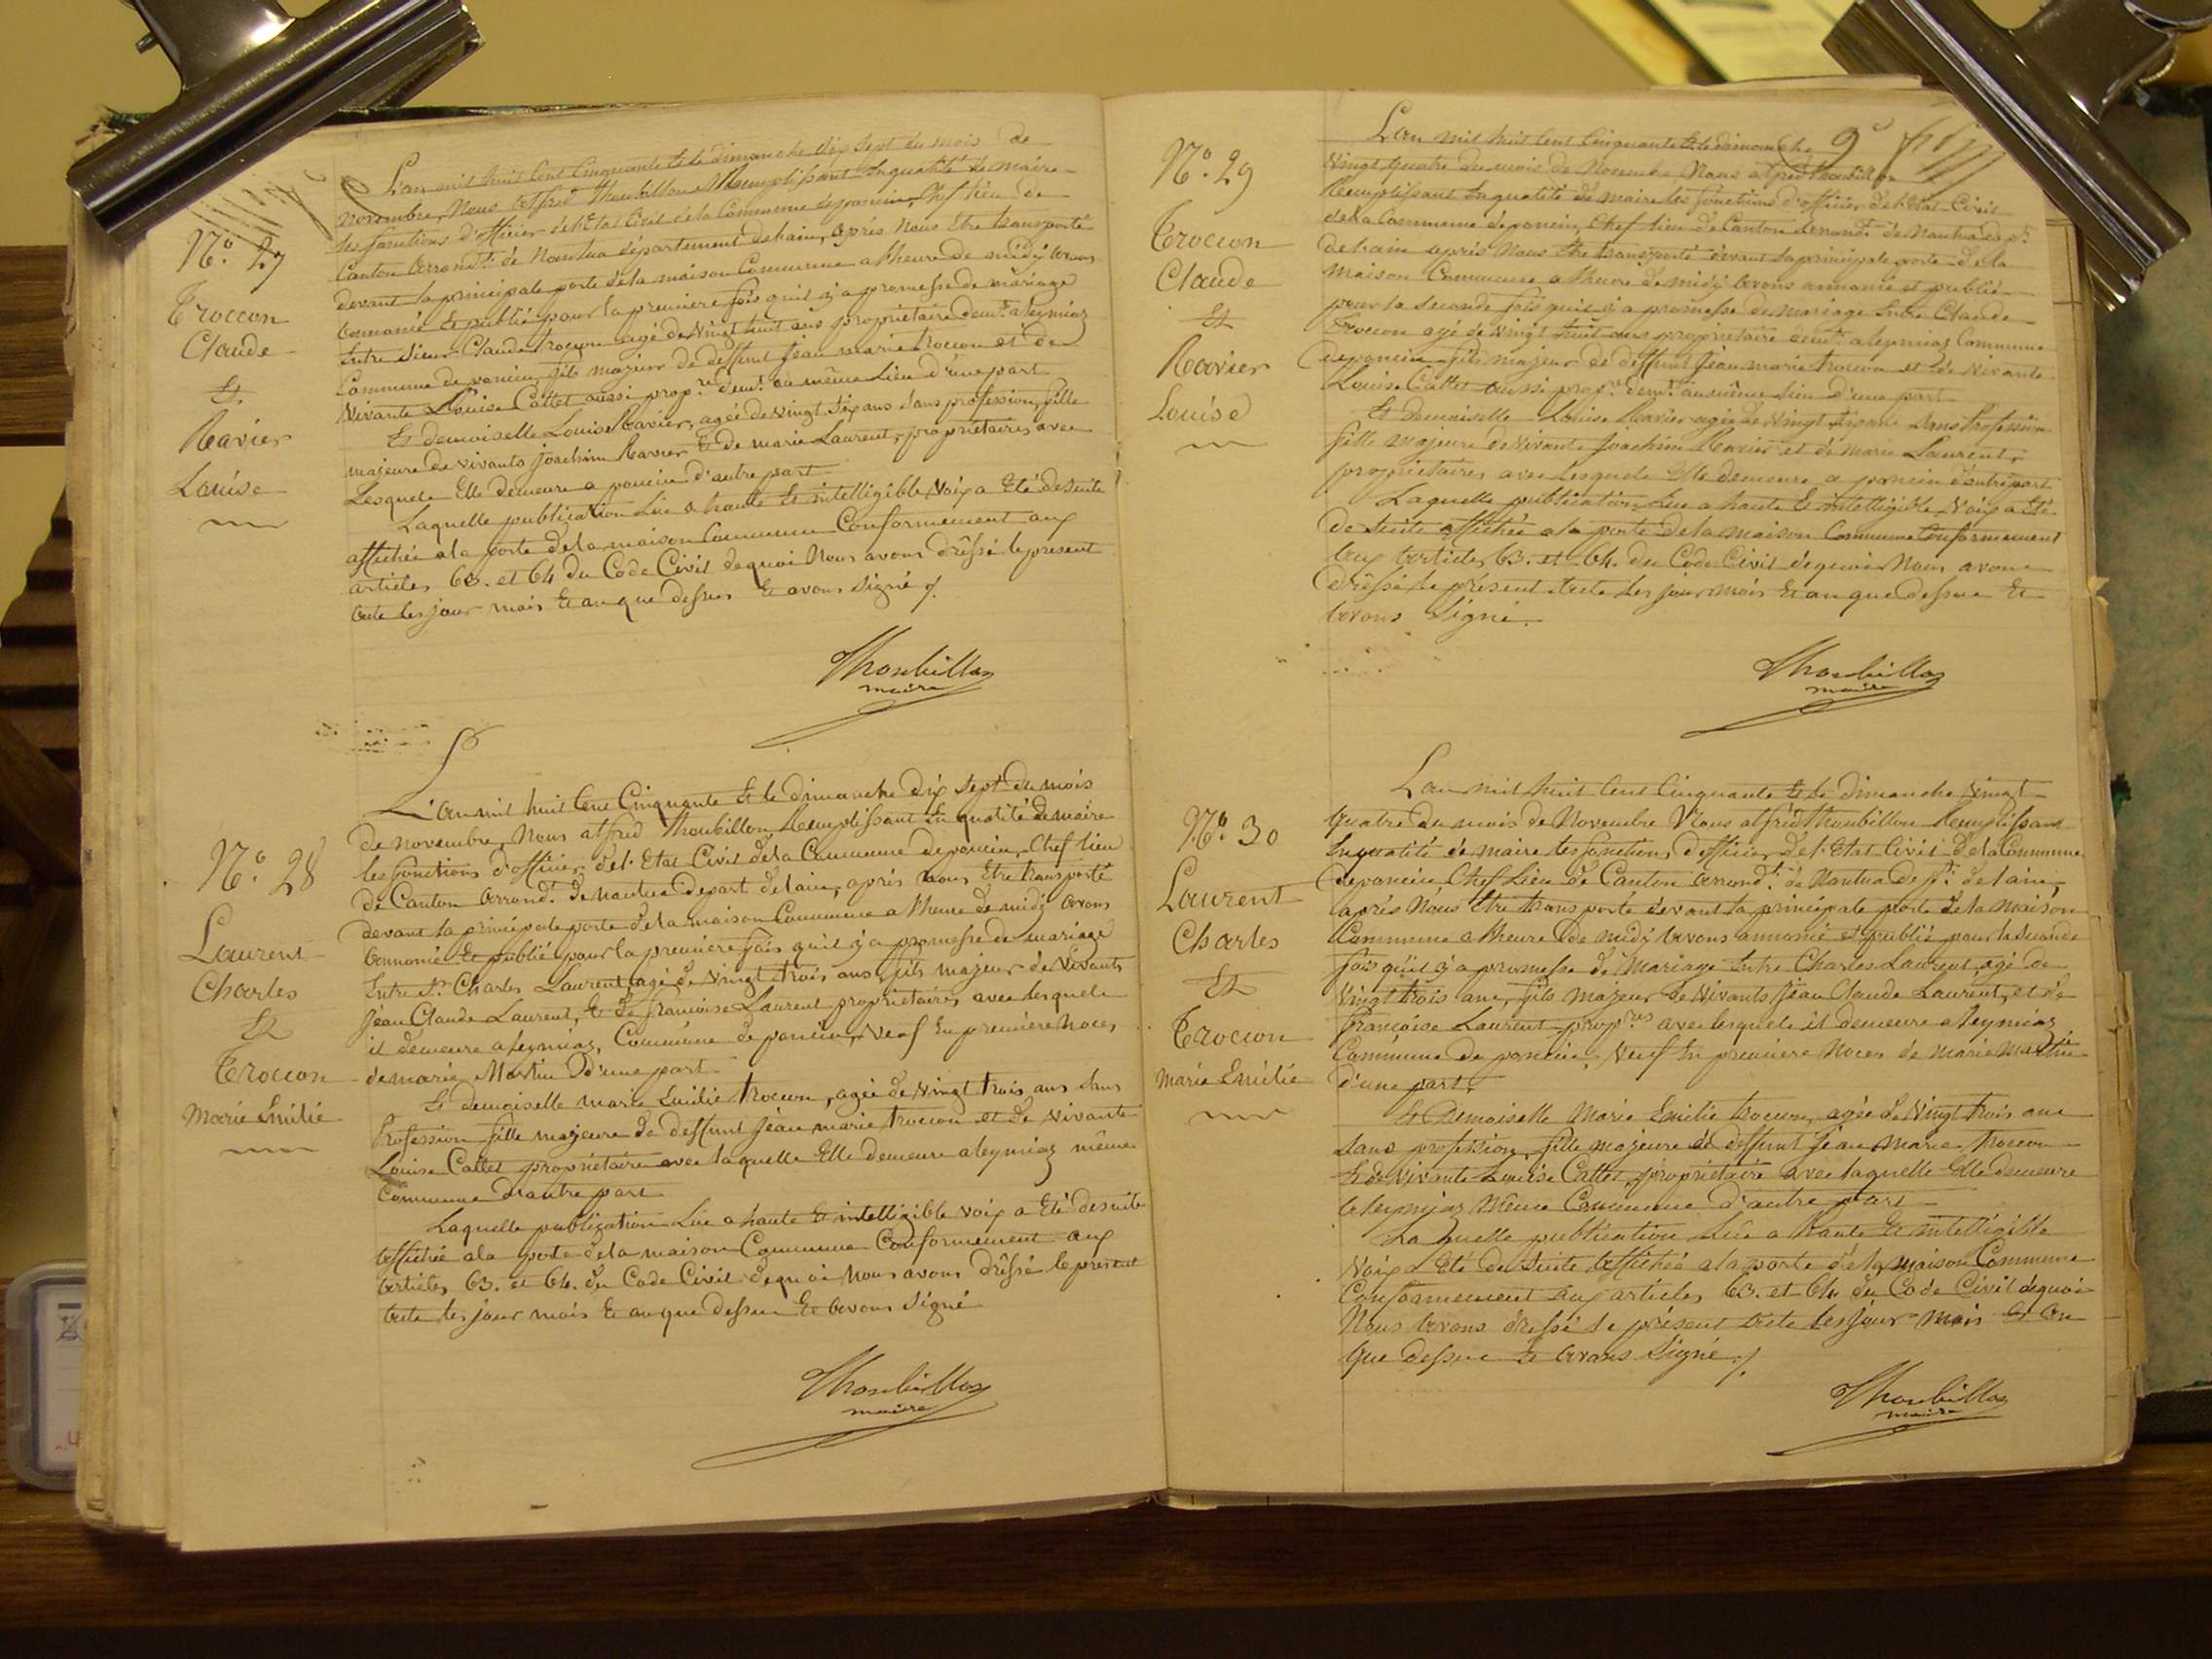 L'an mil huit Cent Cinquante Et le dimanche dix sept du mois de
novembre, Nous alfred Thoubillon Remplissant En qualité de maire
les fonctions d'officier de l'Etat Civil de la Commune deponcin, Chef lieu de
Canton Arrondt. de Nantua département delain, après Nous Etre transporté
devant la principale porte de la maison Commune a lheure de midy avons
annoncé Et publié pour la premiere fois quil y a promesse de mariage
Entre sieur Claude trocion agé de vingt huit ans propriétaire demt. aleymiaz
Commune de poncin, fils majeur de deffunt Jean marie trocion et de
Vivante Louise Cattet aussi propre. demt. au même Lieu d'une part
Et demoiselle Louise Ravier, agée de vingt six ans sans profession, fille
majeure de vivants Joachim Ravier Et de marie Laurent, propriétaires avec
Lesquels Elle demeure a poncin d'autre part
Laquelle publication Lue a haute Et intelligible Voix a Eté desuite
affichée ala porte dela maison Commune Conformement aux
articles 63. et 64 du Code Civil dequoi Nous avons dréssé le present
acte les jour mois Et an que dessus Et avons signé ./.
N°. 27
Trocion
Claude
Et
Ravier
Louise
Thoubillon
maire
L'an mil huit Cent Cinquante Et le dimanche dix sept du mois
de novembre, Nous alfred Thoubillon, Remplissant En qualité de maire
les fonctions d'officier de l'Etat Civil dela Commune deponcin, Chef lieu
de Canton Arrond. de nantua depart. delain, après nous Etre transporté
devant la principale porte dela maison Commune a lheure de midy avons
annoncé Et publié pour la premiere fois quil y a promesse de mariage
Entre Sr. Charles Laurent, agé de vingt trois ans, fils majeur de vivants
Jean Claude Laurent, Et de francoise Laurent propriétaires avec lesquels
il demeure aleymiaz, Commune de poncin, Veuf En premiere Noces
de marie Martin d'une part
Et demoiselle marie Emilie trocion, agée de vingt trois ans sans
Profession fille majeure de deffunt Jean marie trocion et de vivante
Louise Cattet propriétaire avec laquelle Elle demeure aleymiaz même
Commune d'autre part
Laquelle publication Lue a haute Et intelligible voix a Eté desuite
affichée ala porte dela maison Commune Conformement aux
articles 63. et 64. du Code Civil dequoi Nous avons dréssé le present
acte les jour mois Et an que dessus Et avons Signé
N°. 28
Laurent
Charles
Et
Trocion
Marie Emilie
Thoubillon
maire
L'an mil huit Cent Cinquante Et le dimanche
vingt quatre du mois de Novembre Nous alfred Thoubillon
Remplissant En qualité de maire les fonctions d'officier de l'Etat Civil
dela Commune deponcin, Chef lieu de Canton arrondt. de Nantua dept.
delain après Nous Etre transporté devant la principale porte de la
maison Commune a lheure de midy Avons annoncé et publié
pour la seconde fois quil y a promesse de mariage Entre Claude
Trocion agé de vingt huit ans propriétaire demt. aleymiaz Commune
deponcin fils majeur de deffunt Jean marie trocion et de vivante
Louise Cattet aussi propre. demt. au même Lieu d'une part
Et demoiselle Louise Ravier agée de vingt six ans sans Profession
fille majeure de vivants Joachim Ravier et de Marie Laurent,
propriétaires avec Lesquels Elle demeure a poncin d'autre part
Laquelle publication Lue a haute Et intelligible Voix a Eté
de Suite affichée ala porte de la maison Commune Conformement
aux articles 63. et 64. du Code Civil dequoi Nous avons
dréssé le présent acte Les jour mois Et an que dessus Et
avons Signé.
N°. 29
Trocion
Claude
Et
Ravier
Louise
Thoubillon
maire
L'an mil huit Cent Cinquante Et le Dimanche vingt
quatre du mois de Novembre Nous alfred Thoubillon Remplissant
En qualité de maire les fonctions d'officier de l'Etat Civil de la Commune
deponcin, Chef Lieu de Canton arrondt. de Nantua dept. de lain,
après Nous Etre transporté devant la principale porte de la maison
Commune a lheure de midy Avons annoncé et publié pour la seconde
fois quil y a promesse de Mariage Entre Charles Laurent, agé de
vingt trois ans, fils majeur de vivants Jean Claude Laurent, et de
françoise Laurent propres avec lesquels il demeure aleymiaz
Commune de poncin, Veuf En premiere Noces de marie martin
d'une part.
Et Demoiselle Marie Emilie trocion, agée de vingt trois ans
sans profession, fille majeure de deffunt Jean Marie trocion
Et de vivante Louise Cattet, propriétaire avec laquelle Elle demeure
aleymiaz Même Commune d'autre part
Laquelle publication Lue a haute Et intelligible
Voix a Eté de Suite affichée ala porte de la maison Commune
Conformement aux articles 63. et 64 du Code Civil dequoi
Nous Avons dréssé le présent acte les jour mois Et an
que dessus Et Avons Signé ./.
N°. 30
Laurent
Charles
Et
Trocion
Marie Emilie
Thoubillon
maire